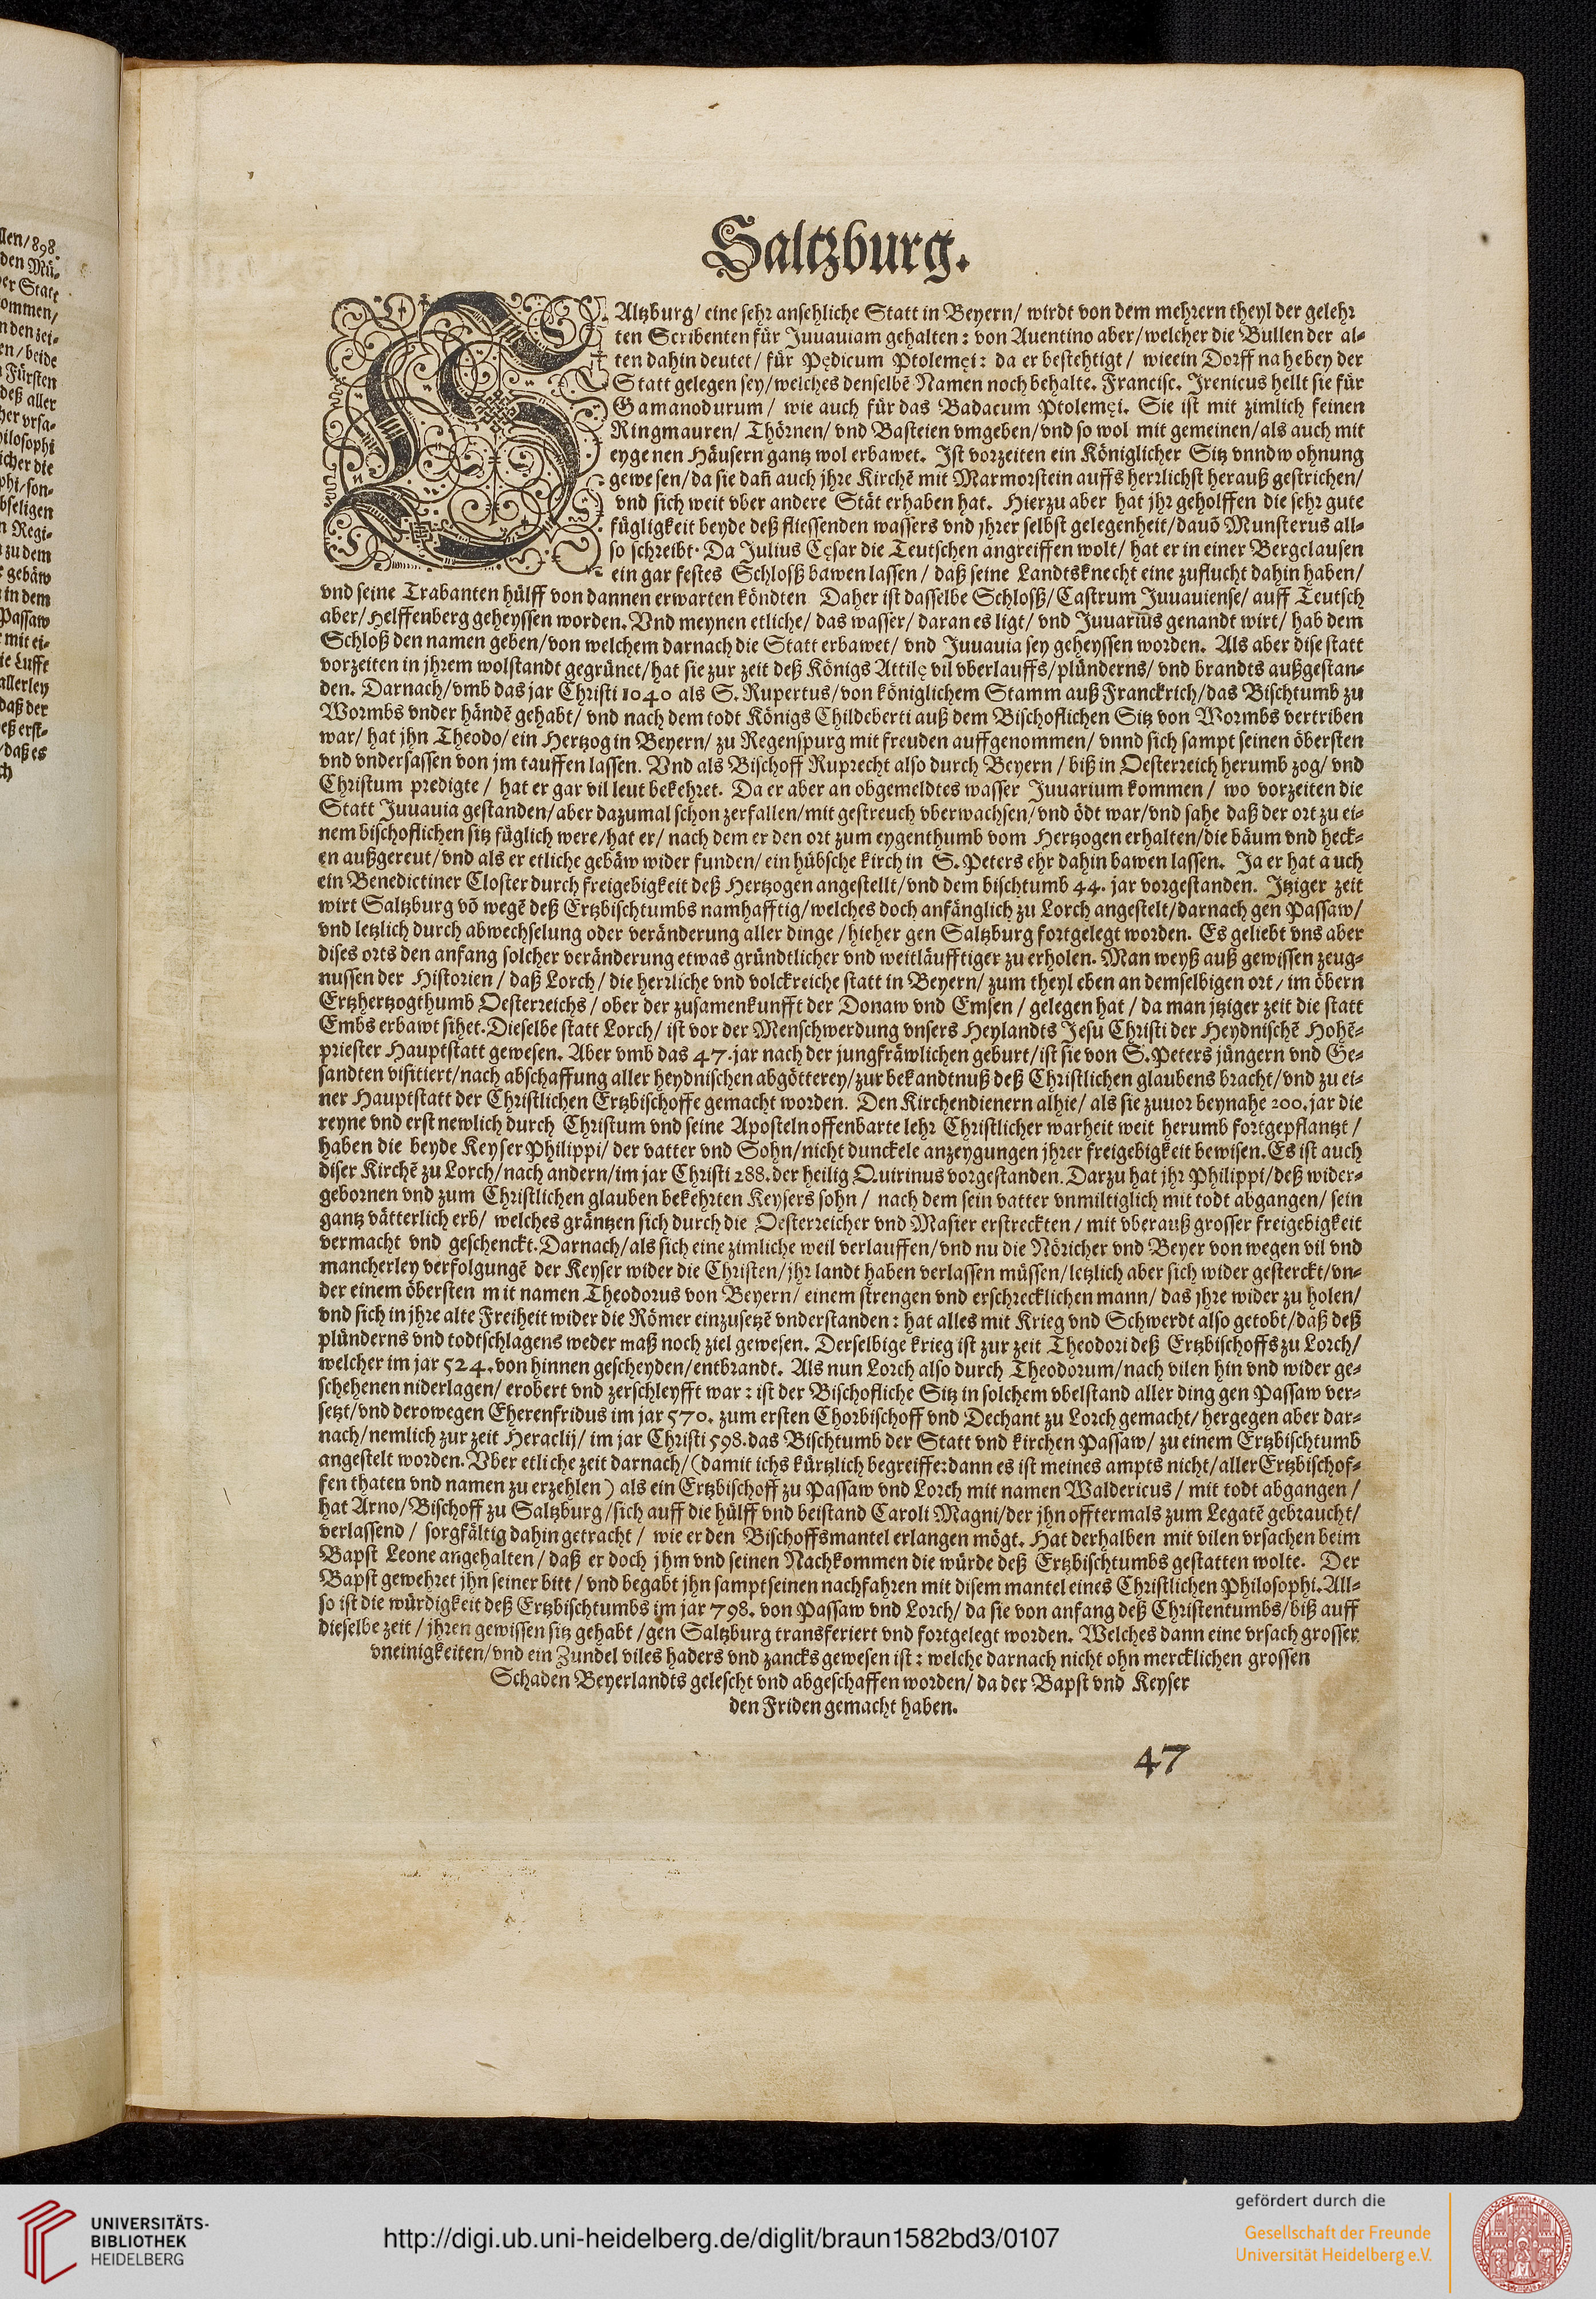 llen/898.
den Mü-
er Statt
ommen/
n den zei-
en/beide
Fürsten
deß aller
her vrsa-
hilosophi
icher die
phi/son-
bseligen
n Regi-
zu dem
gebäw
in dem
Passaw
mit ei-
ie Lufft
allerley
daß der
eß erst-
/daß es
ch
Saltzburg.
SAltzburg/ eine sehr ansehliche Statt in Beyern/ wirdt von dem mehrern theyl der gelehr
ten Scribenten für Juuauiam gehalten: von Auentino aber/welcher die Bullen der al-
ten dahin deutet/ für Pędicum Ptolemęi: da er bestehtigt/ wie ein Dorff nahe bey der
Statt gelegen sey/welches denselbē Namen noch behalte. Francisc. Irenicus hellt sie für
Gamanodurum/ wie auch für das Badacum Ptolemęi. Sie ist mit zimlich feinen
Ringmauren/ Thörnen/ vnd Basteien vmgeben/vnd so wol mit gemeinen/als auch mit
eygenen Häusern gantz wol erbawet. Ist vorzeiten ein Königlicher Sitz vnnd wohnung
gewesen/da sie dañ auch jhre Kirchē mit Marmorstein auffs herrlichst herauß gestrichen/
vnd sich weit vber andere Stät erhaben hat. Hierzu aber hat jhr geholffen die sehr gute
fügligkeit beyde deß fliessenden wassers vnd jhrer selbst gelegenheit/dauō Munsterus all-
so schreibt. Da Julius Cęsar die Teutschen angreiffen wolt/ hat er in einer Bergclausen
ein gar festes Schlosß bawen lassen/ daß seine Landtsknecht eine zuflucht dahin haben/
vnd seine Trabanten hülff von dannen erwarten köndten Daher ist dasselbe Schlosß/Castrum Juuauiense/ auff Teutsch
aber/Helffenberg geheyssen worden. Vnd meynen etliche/ das wasser/ daran es ligt/ vnd Juuarius genandt wirt/ hab dem
Schloß den namen geben/von welchem darnach die Statt erbawet/ vnd Juuauia sey geheyssen worden. Als aber dise statt
vorzeiten in jhrem wolstandt gegrünet/hat sie zur zeit deß Königs Attilę vil vberlauffs/plünderns/ vnd brandts außgestan-
den. Darnach/vmb das jar Christi 1040 als S. Rupertus/von königlichem Stamm auß Franckrich/das Bischtumb zu
Wormbs vnder händē gehabt/ vnd nach dem todt Königs Childeberti auß dem Bischoflichen Sitz von Wormbs vertriben
war/ hat jhn Theodo/ ein Hertzog in Beyern/ zu Regenspurg mit freuden auffgenommen/ vnnd sich sampt seinen öbersten
vnd vndersassen von jm tauffen lassen. Vnd als Bischoff Ruprecht also durch Beyern/ biß in Oesterreich herumb zog/ vnd
Christum predigte/ hat er gar vil leut bekehret. Da er aber an obgemeldtes wasser Juuarium kommen/ wo vorzeiten die
Statt Juuauia gestanden/aber dazumal schon zerfallen/mit gestreuch vberwachsen/vnd ödt war/vnd sahe daß der ort zu ei-
nem bischoflichen sitz füglich were/hat er/ nach dem er den ort zum eygenthumb vom Hertzogen erhalten/die bäum vnd heck-
en außgereut/vnd als er etliche gebäw wider funden/ein hübsche kirch in S. Peters ehr dahin bawen lassen. Ja er hat auch
ein Benedictiner Closter durch freigebigkeit deß Hertzogen angestellt/vnd dem bischtumb 44. jar vorgestanden. Itziger zeit
wirt Saltzburg vō wegē deß Ertzbischtumbs namhafftig/welches doch anfänglich zu Lorch angestelt/darnach gen Passaw/
vnd letzlich durch abwechselung oder veränderung aller dinge/hieher gen Saltzburg fortgelegt worden. Es geliebt vns aber
dises orts den anfang solcher veränderung etwas gründtlicher vnd weitläufftiger zu erholen. Man weyß auß gewissen zeug-
nussen der Historien/ daß Lorch/ die herrliche vnd volckreiche statt in Beyern/ zum theyl eben an demselbigen ort/ im öbern
Ertzhertzogthumb Oesterreichs/ ober der zusamenkunfft der Donaw vnd Emsen/ gelegen hat/ da man jtziger zeit die statt
Embs erbawt sihet. Dieselbe statt Lorch/ ist vor der Menschwerdung vnsers Heylandts Jesu Christi der Heydnischē Hohē-
priester Hauptstatt gewesen. Aber vmb das 47. jar nach der jungfräwlichen geburt/ist sie von S. Peters jüngern vnd Ge-
sandten visitiert/nach abschaffung aller heydnischen abgötterey/zur bekandtnuß deß Christlichen glaubens bracht/vnd zu ei-
ner Hauptstatt der Christlichen Ertzbischoffe gemacht worden. Den Kirchendienern alhie/ als sie zuuor beynahe 200. jar die
reyne vnd erst newlich durch Christum vnd seine Aposteln offenbarte lehr Christlicher warheit weit herumb fortgepflantzt/
haben die beyde Keyser Philippi/ der vatter vnd Sohn/nicht dunckele anzeygungen jhrer freigebigkeit bewisen. Es ist auch
diser Kirchē zu Lorch/nach andern/im jar Christi 288. der heilig Quirinus vorgestanden. Darzu hat jhr Philippi/deß wider-
gebornen vnd zum Christlichen glauben bekehrten Keysers sohn/ nach dem sein vatter vnmiltiglich mit todt abgangen/ sein
gantz vätterlich erb/ welches gräntzen sich durch die Oesterreicher vnd Masier erstreckten/ mit vberauß grosser freigebigkeit
vermacht vnd geschenckt. Darnach/als sich eine zimliche weil verlauffen/vnd nu die Nöricher vnd Beyer von wegen vil vnd
mancherley verfolgungē der Keyser wider die Christen/jhr landt haben verlassen müssen/letzlich aber sich wider gesterckt/vn-
der einem öbersten mit namen Theodorus von Beyern/ einem strengen vnd erschrecklichen mann/ das jhre wider zu holen/
vnd sich in jhre alte Freiheit wider die Römer einzusetzē vnderstanden: hat alles mit Krieg vnd Schwerdt also getobt/daß deß
plünderns vnd todtschlagens weder maß noch ziel gewesen. Derselbige krieg ist zur zeit Theodori deß Ertzbischoffs zu Lorch/
welcher im jar 524. von hinnen gescheyden/entbrandt. Als nun Lorch also durch Theodorum/nach vilen hin vnd wider ge-
schehenen niderlagen/ erobert vnd zerschleyfft war: ist der Bischofliche Sitz in solchem vbelstand aller ding gen Passaw ver-
setzt/vnd derowegen Eherenfridus im jar 570. zum ersten Chorbischoff vnd Dechant zu Lorch gemacht/ hergegen aber dar-
nach/nemlich zur zeit Heraclij/ im jar Christi 598. das Bischtumb der Statt vnd kirchen Passaw/ zu einem Ertzbischtumb
angestelt worden. Vber etliche zeit darnach/ (damit ichs kürtzlich begreiffe: dann es ist meines ampts nicht/aller Ertzbischof-
fen thaten vnd namen zu erzehlen) als ein Ertzbischoff zu Passaw vnd Lorch mit namen Waldericus/ mit todt abgangen/
hat Arno/Bischoff zu Saltzburg/sich auff die hülff vnd beistand Caroli Magni/der jhn offtermals zum Legatē gebraucht/
verlassend/ sorgfältig dahin getracht/ wie er den Bischoffsmantel erlangen mögt. Hat derhalben mit vilen vrsachen beim
Bapst Leone angehalten/ daß er doch jhm vnd seinen Nachkommen die würde deß Ertzbischtumbs gestatten wolte. Der
Bapst gewehret jhn seiner bitt/ vnd begabt jhn sampt seinen nachfahren mit disem mantel eines Christlichen Philosophi. All-
so ist die würdigkeit deß Ertzbischtumbs im jar 798. von Passaw vnd Lorch/ da sie von anfang deß Christentumbs/biß auff
dieselbe zeit/ jhren gewissen sitz gehabt/gen Saltzburg transferiert vnd fortgelegt worden. Welches dann eine vrsach grosser
vneinigkeiten/vnd ein Zundel viles haders vnd zancks gewesen ist: welche darnach nicht ohn mercklichen grossen
Schaden Beyerlandts gelescht vnd abgeschaffen worden/ da der Bapst vnd Keyser
den Friden gemacht haben.
47
UNIVERSITÄTS-
BIBLIOTHEK
HEIDELBERG
http://digi.ub.uni-heidelberg.de/diglit/braun1582bd3/0107
gefördert durch die
Gesellschaft der Freunde
Universität Heidelberg e.V.